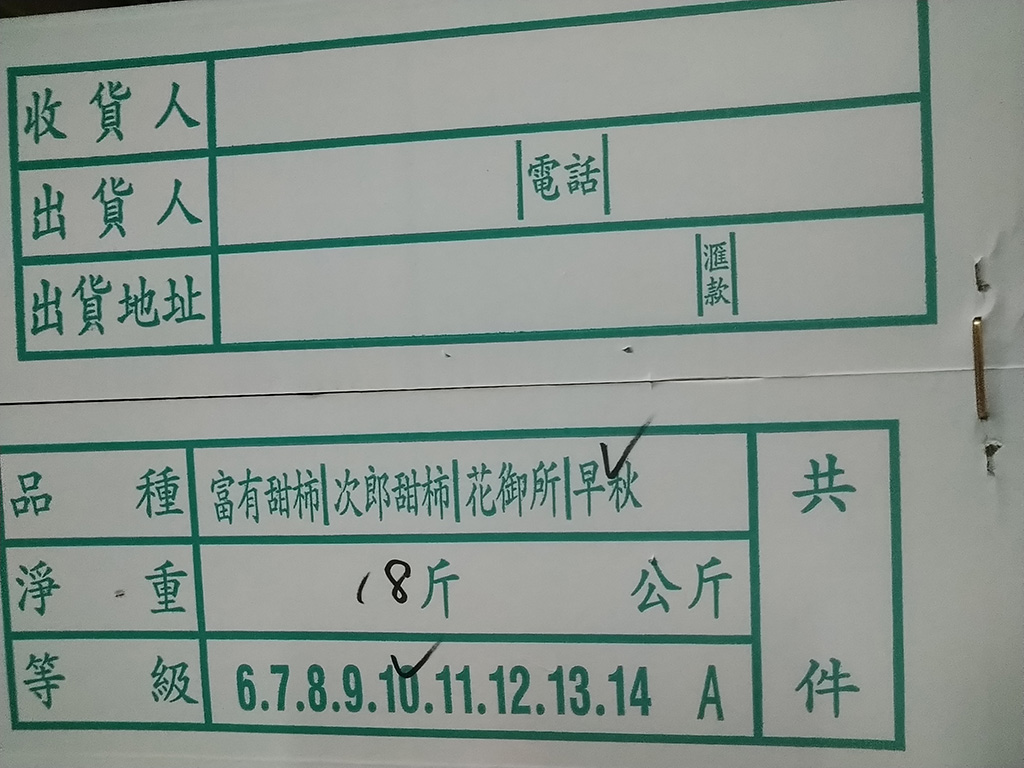 收貨人
出貨人 電話
出貨地址 匯款
品種 富有甜柿|次郎甜柿|花御所|早秋
淨重 18斤 公斤
等級 6.7.8.9.10.11.12.13.14 A
共件